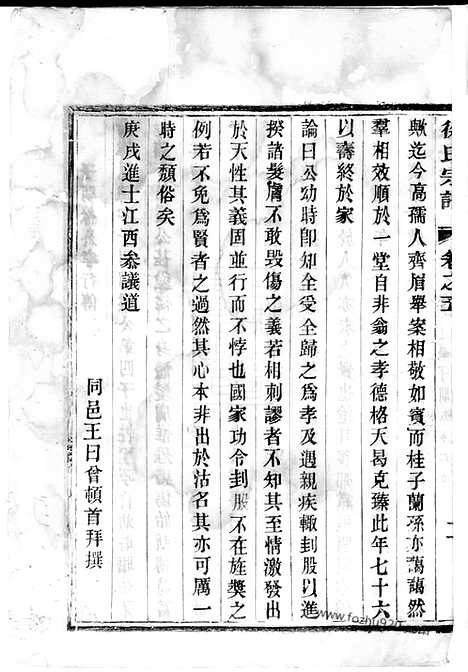 徐氏宗譜 卷之五
歟迄今高孺人齊眉舉案相敬如賓而桂子蘭孫亦藹藹然
羣相效順於一堂自非翁之孝德格天曷克臻此年七十六
以壽終於家
論曰公幼時卽知全受全歸之爲孝及遇親疾輙刲股以進
揆諸髮膚不敢毀傷之義若相刺謬者不知其至情激發出
於天性其義固並行而不悖也國家功令刲股不在旌獎之
例若不免爲賢者之過然其心本非出於沽名其亦可厲一
時之頹俗矣
庚戌進士江西叅議道
同邑王曰曾頓首拜撰
www.fozhu920.com